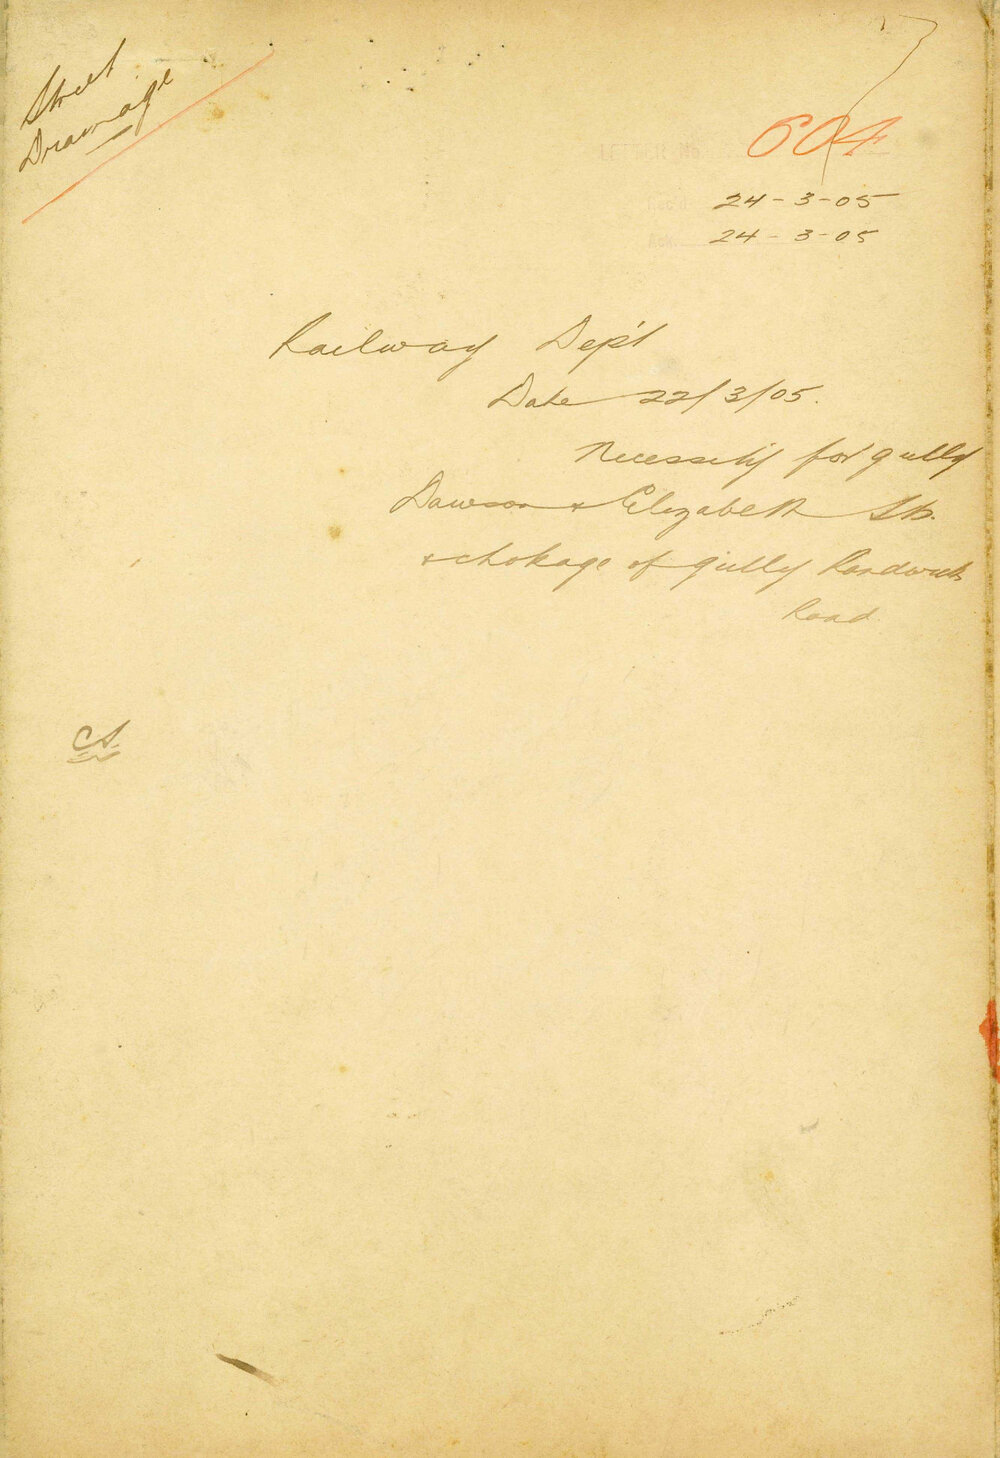 Street
Drainage
604
24-3-05
24-3-05
Railway Dep't
Date 22/3/05.
Necessity for gully
Dawson & Elizabeth Sts.
& chokage of gully Randwick
Road
CS